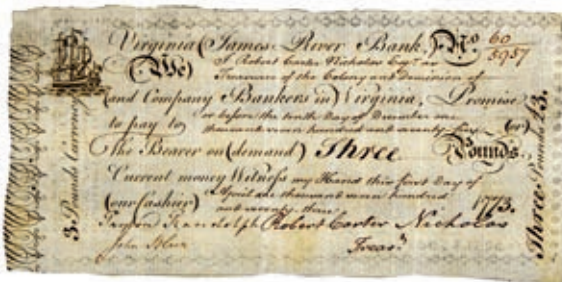 Virginia (James River Bank.) No 60
5957
I Robert Carter Nicholas Esqr. as
(We)
Treasurer of the Colony and Dominion of
(and Company Bankers in) Virginia, Promise
or before the tenth Day of December one
to pay to
thousand seven hundred and seventy (or)
The Bearer on (demand) Three Pounds,
Current money Witness my Hand this first Day of
April one thousand seven hundred
(our Cashier)
and seventy three 1773.
Peyton Randolph Robert Carter Nicholas
John Blair Treasr.
3. Pounds Currency
Three Pounds £3.